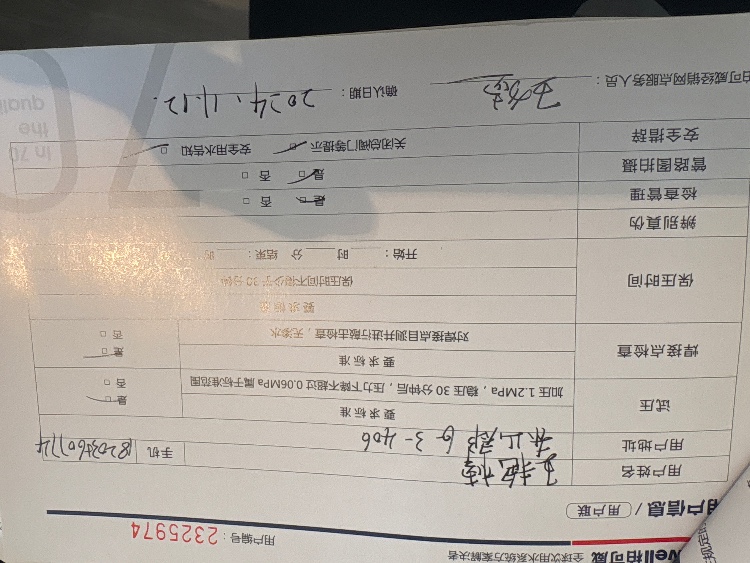 well柏可威 全球饮用水系统方案解决者
用户编号：2325974
用户信息 /（用户联）
用户姓名
手机
用户地址 6-3-406
试压 要求标准
加压1.2MPa，稳压30分钟后，压力下降不超过0.06MPa属于标准范围
是 □
否 □
焊接点检查 要求标准
对焊接点目测并进行敲击检查，无渗水
是 □
否 □
保压时间 要求标准
保压时间不得少于30分钟
开始： 时 分 结束： 时
辨别真伪
检查管理 是 □ 否 □
管路图拍摄 是 □ 否 □
安全措辞 关闭总阀门等提示 □ 安全用水告知 □
柏可威经销网点服务人员： 确认日期：2024.11.12.
In 70
the
quali